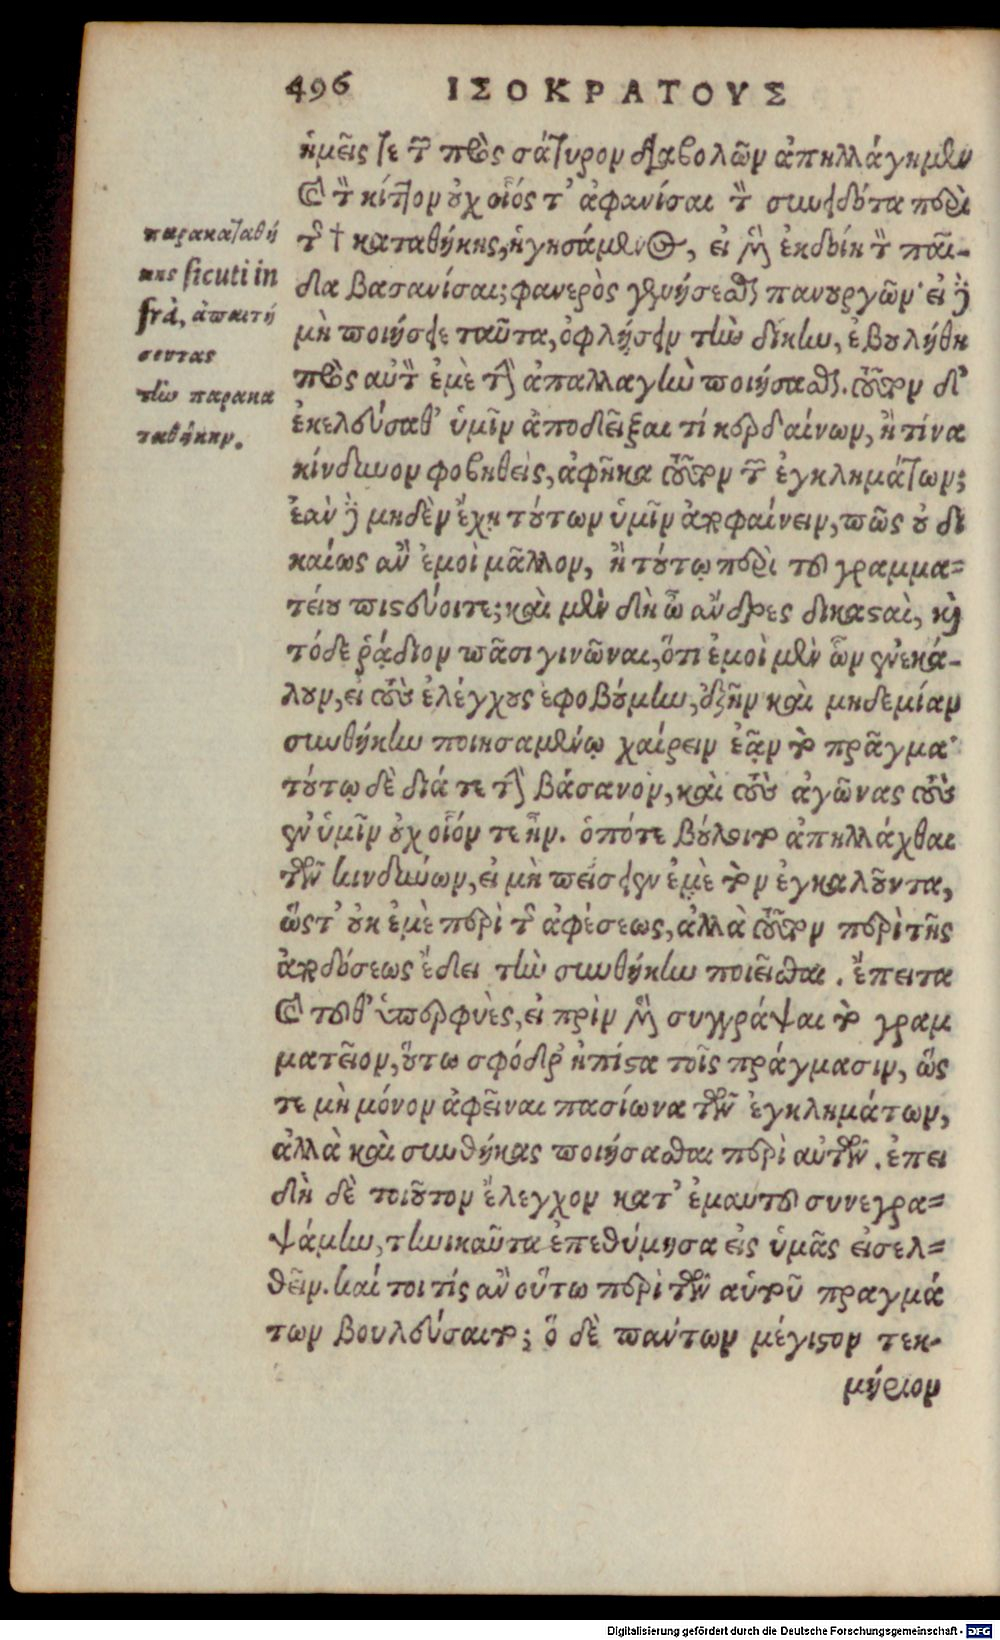 496 ΙΣΟΚΡΑΤΟΥΣ
ἡμεῖς τε τῶν πρὸς σάτυρον διαβολῶν ἀπηλλάγημεν
καὶ τὸν κίττον οὐχ οἷός τ' ἀφανίσαι τὸν συνειδότα περὶ
τῆς † καταθήκης, ἡγησάμενος, εἰ μὲν ἐκδοίη τὸν παῖ-
δα βασανίσαι; φανερὸς γενήσεσθαι πανουργῶν· εἰ δὲ
μὴ ποιήσειε ταῦτα, ὀφλήσειν τὴν δίκην, ἐβουλήθη
πρὸς αὐτὸν ἐμὲ τὴν ἀπαλλαγὴν ποιήσασθαι. τοῦτον δ'
ἐκελεύσαθ' ὑμῖν ἀποδεῖξαι τί κερδαίνων, ἢ τίνα
κίνδυνον φοβηθεὶς, ἀφῆκα τοῦτον τῶν ἐγκλημάτων;
ἐὰν δὲ μηδὲν ἔχῃ τούτων ὑμῖν ἀποφαίνειν, πῶς οὐ δι
καίως ἂν ἐμοὶ μᾶλλον, ἢ τούτῳ περὶ τοῦ γραμμα-
τείου πιστεύοιτε; καὶ μὲν δὴ ὦ ἄνδρες δικασταὶ, καὶ
τόδε ῥᾴδιον πᾶσι γινῶναι, ὅτι ἐμοὶ μὲν ὧν ἐνεκά-
λουν, εἰ τοὺς ἐλέγχους ἐφοβούμην, ἐξῆν καὶ μηδεμίαν
συνθήκην ποιησαμένῳ χαίρειν ἐᾷν τὸ πρᾶγμα·
τούτῳ δὲ διά τε τὴν βάσανον, καὶ τοὺς ἀγῶνας τοὺς
ἐν ὑμῖν οὐχ οἷόν τε ἦν. ὁπότε βούλοιτο ἀπηλλάχθαι
τῶν κινδύνων, εἰ μὴ πείσειεν ἐμὲ τὸν ἐγκαλοῦντα,
ὥστ' οὐκ ἐμὲ περὶ τῆς ἀφέσεως, ἀλλὰ τοῦτον περὶ τῆς
ἀποδόσεως ἔδει τὴν συνθήκην ποιεῖσθαι. ἔπειτα
καὶ τοῦθ' ὑπερφυὲς, εἰ πρὶν μὲν συγγράψαι τὸ γραμ
ματεῖον, οὕτω σφόδρ' ἠπίστα τοῖς πράγμασιν, ὥς
τε μὴ μόνον ἀφεῖναι πασίωνα τῶν ἐγκλημάτων,
ἀλλὰ καὶ συνθήκας ποιήσασθαι περὶ αὐτῶν. ἐπει
δὴ δὲ τοιοῦτον ἔλεγχον κατ' ἐμαυτοῦ συνεγρα-
ψάμην, τηνικαῦτα ἐπεθύμησα εἰς ὑμᾶς εἰσελ-
θεῖν. καί τοι τίς ἂν οὕτω περὶ τῶν αὑτοῦ πραγμά
των βουλεύσαιτο; ὃ δὲ πάντων μέγιστον τεκ-
μήριον
παρακαταθή
κης sicuti in
frà, ἀπαιτή
σοντας
τὴν παρακα
ταθήκην.
Digitalisierung gefördert durch die Deutsche Forschungsgemeinschaft - DFG